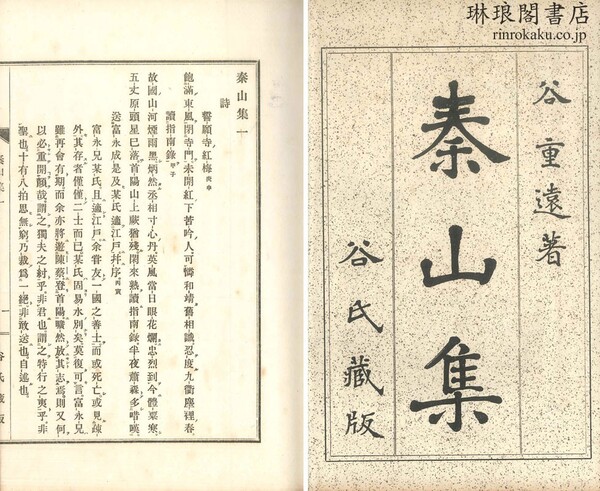 琳琅閣書店
rinrokaku.co.jp
谷重遠著
秦山集
谷氏藏版
秦山集一
詩
誓願寺紅梅
飽滿東風閉寺門未開紅下苦吟人可憐和靖舊相識忍度九衢塵裡春
讀指南錄 甲子
故國山河煙雨黑炳然丞相寸心丹英風當日眼花爛忠烈到今體粟寒
五丈原頭星已落首陽山上蕨猶殘閑來熟讀指南錄半夜蕭森多喈嘆
送富永成是及某氏適江戶幷序 丙寅
富永兄某氏且適江戶余嘗友一國之善士而或死亡或見疎
外其存者僅僅二士而已某氏固易水別矣莫復可言富永兄
雖再會有期而余亦將遊陳蔡登首陽曠然放其志焉則又何
以必重開顏哉謂之獨夫之紂乎非君也謂之特行之夷乎非
聖也十有八拍思無窮乃裁爲一絕非敢送也自述也
一
谷氏藏版